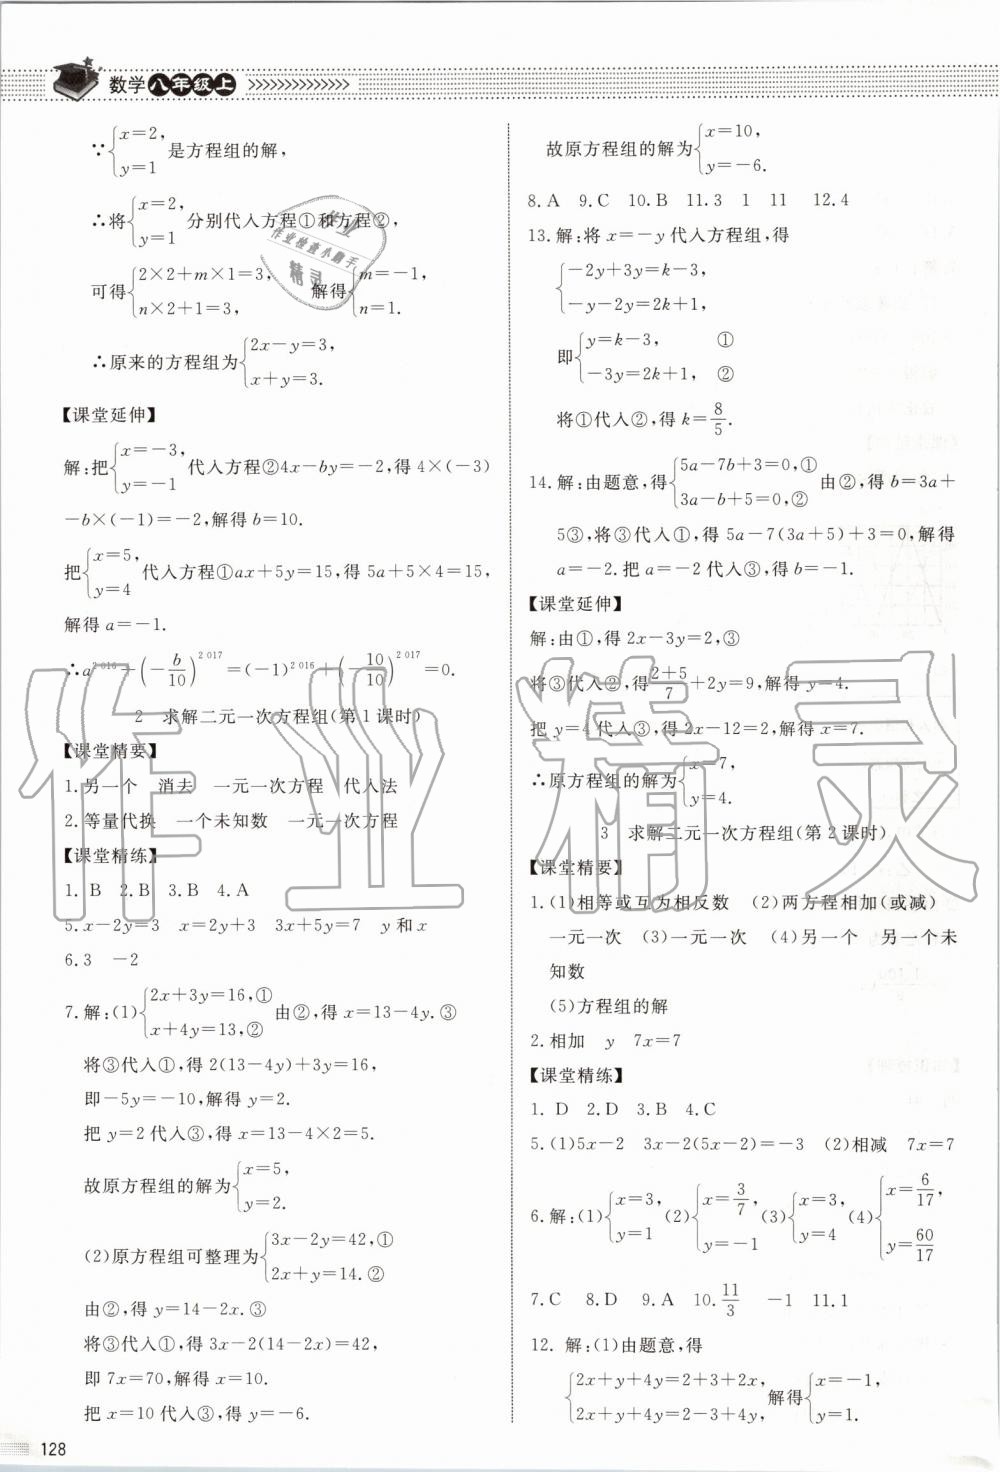 数学八年级上
∵{x=2, y=1 是方程组的解,
∴将{x=2, y=1 分别代入方程①和方程②,
可得{2×2+m×1=3, n×2+1=3, 解得{m=-1, n=1.
∴原来的方程组为{2x-y=3, x+y=3.
【课堂延伸】
解:把{x=-3, y=-1 代入方程②4x-by=-2,得 4×(-3)
-b×(-1)=-2,解得 b=10.
把{x=5, y=4 代入方程①ax+5y=15,得 5a+5×4=15,
解得 a=-1.
∴a^2016+(-b/10)^2017=(-1)^2016+(-10/10)^2017=0.
2 求解二元一次方程组(第1课时)
【课堂精要】
1.另一个 消去 一元一次方程 代入法
2.等量代换 一个未知数 一元一次方程
【课堂精练】
1. B 2.B 3.B 4.A
5.x-2y=3 x=2y+3 3x+5y=7 y和x
6.3 -2
7.解:(1){2x+3y=16,① x+4y=13,② 由②,得 x=13-4y.③
将③代入①,得 2(13-4y)+3y=16,
即-5y=-10,解得 y=2.
把 y=2 代入③,得 x=13-4×2=5.
故原方程组的解为{x=5, y=2.
(2)原方程组可整理为{3x-2y=42,① 2x+y=14.②
由②,得 y=14-2x.③
将③代入①,得 3x-2(14-2x)=42,
即 7x=70,解得 x=10.
把 x=10 代入③,得 y=-6.
128
故原方程组的解为{x=10, y=-6.
8.A 9.C 10.B 11.3 1 11 12.4
13.解:将 x=-y 代入方程组,得
{-2y+3y=k-3, -y-2y=2k+1,
即{y=k-3, ① -3y=2k+1, ②
将①代入②,得 k=8/5.
14.解:由题意,得{5a-7b+3=0,① 3a-b+5=0,② 由②,得 b=3a+
5③,将③代入①,得 5a-7(3a+5)+3=0,解得
a=-2.把 a=-2 代入③,得 b=-1.
【课堂延伸】
解:由①,得 2x-3y=2,③
将③代入②,得 (2+5)/7+2y=9,解得 y=4.
把 y=4 代入③,得 2x-12=2,解得 x=7.
∴原方程组的解为{x=7, y=4.
3 求解二元一次方程组(第2课时)
【课堂精要】
1.(1)相等或互为相反数 (2)两方程相加(或减)
一元一次 (3)一元一次 (4)另一个 另一个未
知数
(5)方程组的解
2.相加 y 7x=7
【课堂精练】
1. D 2.D 3.B 4.C
5.(1)5x-2 3x-2(5x-2)=-3 (2)相减 7x=7
6.解:(1){x=3, y=1 (2){x=3/7, y=-1 (3){x=3, y=4 (4){x=6/17, y=60/17
7.C 8.D 9.A 10.11/3 -1 11.1
12.解:(1)由题意,得
{2x+y+4y=2+3+2x, 2x+y+4y=2-3+4y, 解得{x=-1, y=1.
作业精灵
作业
作业检查小助手
精灵